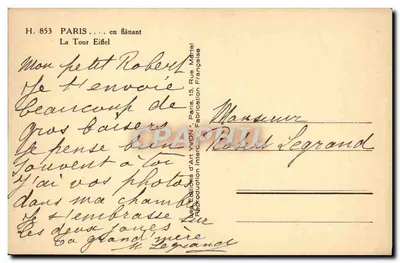 H. 853 PARIS.... en flânant
La Tour Eiffel
Mon petit Robert
Je t'envoie
beaucoup de
gros baisers
Je pense bien
souvent à toi
J'ai vos photos
dans ma chambre
Je t'embrasse sur
les deux joues
ta grand'mère
M Legrand
Les Editions d'Art "YVON", Paris, 15, Rue Martel
Reproduction Interdite. Fabrication Française
Monsieur
Robert Legrand